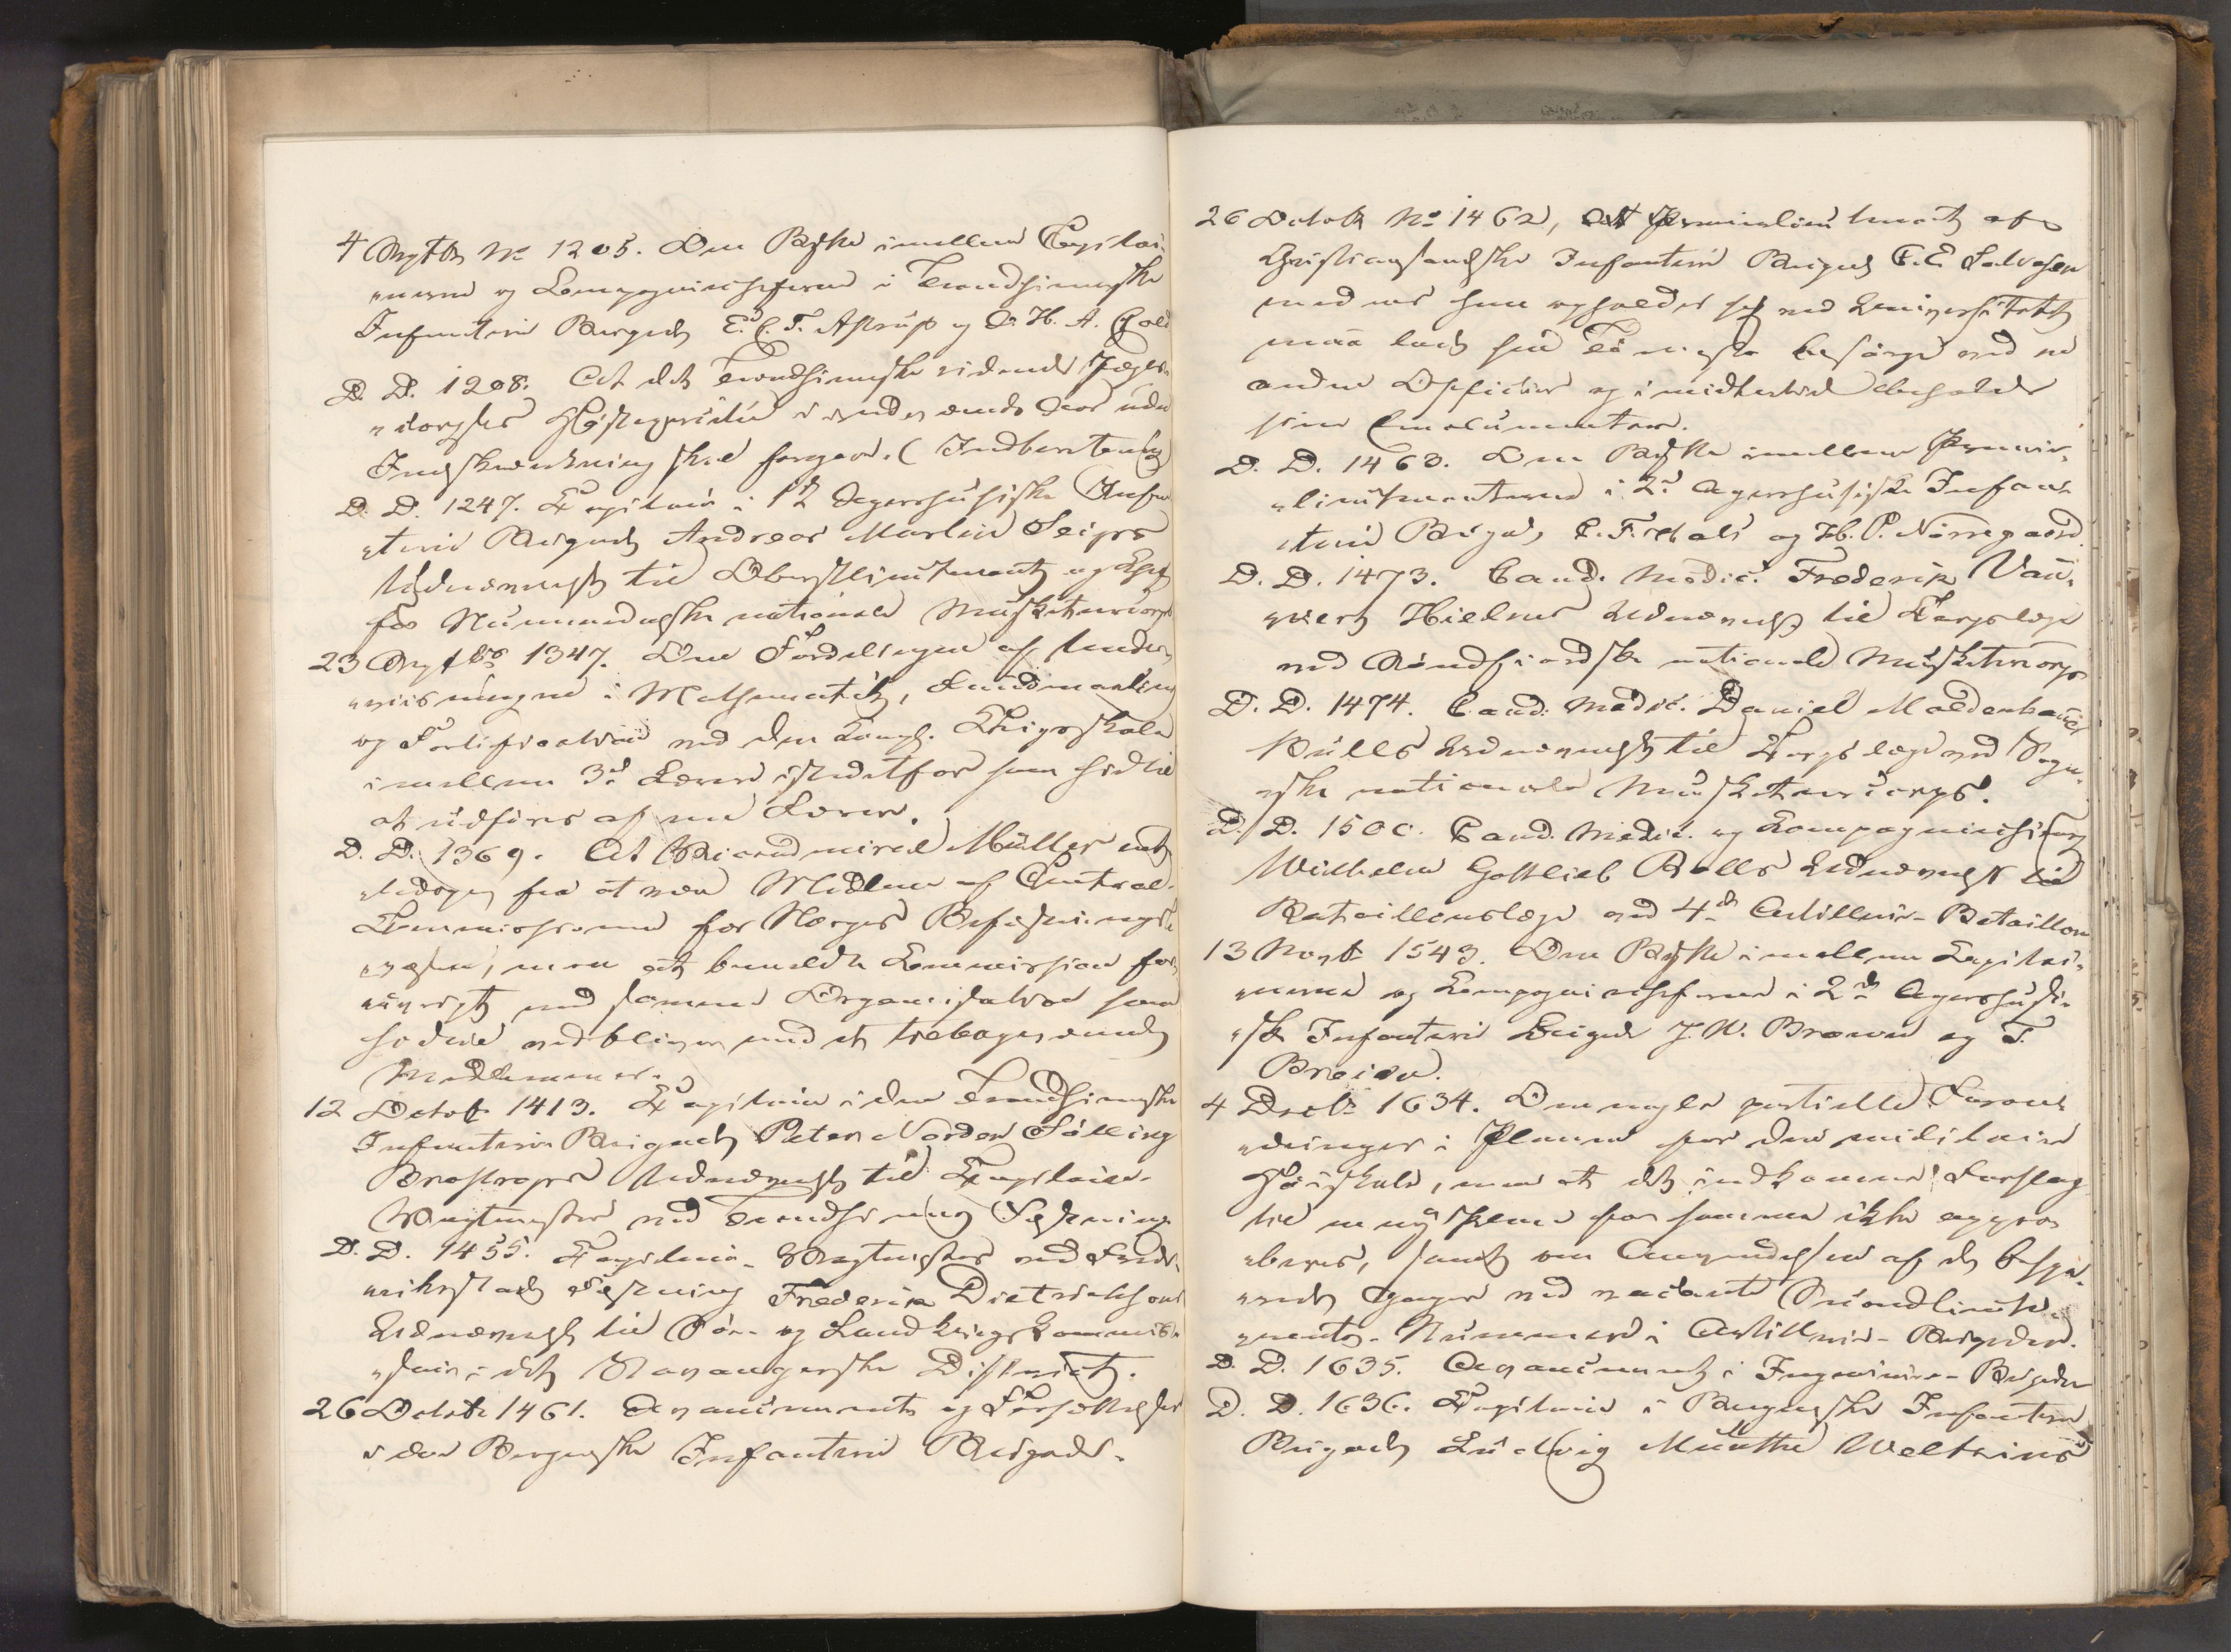 4 Septbr No 1205. Om Bytte imellem Capitai-
nerne og Compagniecheferne i Trondhjemske
Infanteri Brigade E. C. T. Astrup og O. H. A. Cold
D. D. 1208. At det Trondhjemske ridende Jæger-
corpses indeværende Aar uden
Indskrænkning skal foregaae. (Indberetning)
D. D. 1247. Kapitain i 1ste Agershusiske Infan-
teri Brigade Andreas Martin Seips
Udnævnelse til Oberstlieutenant og Chef
for Nummedalske nationale Musketeercorps
23 Septbr 1347. Om Fordelingen af Under-
viisningen i Mathematik, Landmaaling
og Fortification ved den Kongl. Krigsskole
imellem 3de Lærere istedetfor som hidtil
at udføres af een Lærer.
D. D. 1369. At Müller ent-
ledeges fra at være Medlem af Central-
Commissionen for Norges Befæstnings-
væsen, men at bemeldte Commission for-
øvrigt med samme Organisation som
hidtil vedbliver med de tilbageværende
Medlemmer.
12 Octobr 1413. Kapitain i den Trondhjemske
Infanterie Brigade Peter Norden Sølling
Brostrops Udnævnelse til Kapitain-
Vagtmester ved Trondhjems Fæstning
D. D. 1455. Kapitain-Vagtmester ved Frede-
rikstads Fæstning Frederik Dietrichsons
Udnævnelse til Sø- og Landkrigskommis-
sair i det Stavangerske District.
26 Octobr 1461. Avancements og Forsættelser
i den Bergenske Infanteri Brigade.
26 Octobr No 1462, At Premierlieutenant af
Christiansandske Infanteri Brigade C. E. Salvesen
medens han opholder sig ved Universitetet
maa lade sin Tjeneste besørge ved en
anden Officier og imidlertid beholde
sine Emolumenter.
D. D. 1463. Om Bytte imellem Premier-
lieutenanterne i 2de Agershusiske Infan-
teri Brigade, C. F. og H. P. Nørregaard
D. D. 1473. Cand. Medic. Frederik Vau-
vert Hielms Udnævnelse til Korpslæge
ved Søndfiordske nationale Musketeercorps
D. D. 1474. Cand: Medic. Daniel Moldenhauer
Bulls Udnævnelse til Korpslæge ved Sogn-
ske nationale Musketeercorps.
D. D. 1500. Cand. Medic. og Kompagniechirurg
Wilhelm Gottlieb Bolls Udnævnelse til
Bataillonslæge ved 4de Artillerie-Bataillon
13 Novbr 1543. Om Bytte imellem Kapitai-
nerne og Kompagniecheferne i 2de Agershusi-
ske Infanteri Brigade J. W. Brown og T.
Breien.
4 Decbr 1634. Om nogle partielle Foran-
dringer i Planen for den militaire
Høiskole, men at det indkomne Forslag
til en ny Plan for samme ikke appro-
beres, samt om Anvendelsen af de bespa-
rede Gager ved vacante Secondlieute-
nants-Nummere i Artillerie-Brigaden.
D. D. 1635. Avancement i Ingenieur-Brigaden
D. D. 1636. Kapitain i Bergenske Infanteri
Brigade Ludvig Munthe Weltzins